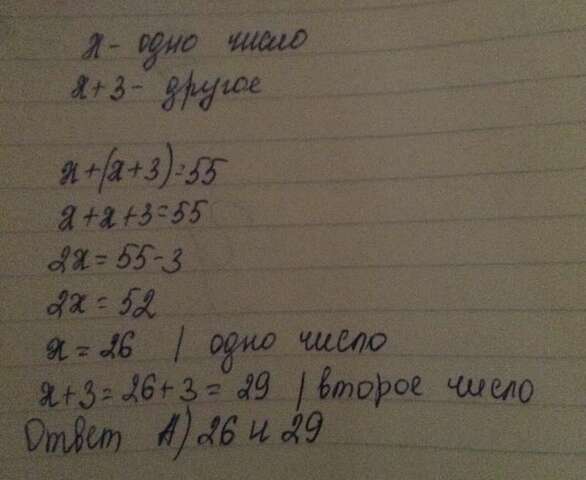 x - одно число
x+3 - другое
x+(x+3)=55
x+x+3=55
2x=55-3
2x=52
x=26 | одно число
x+3=26+3=29 | второе число
Ответ А) 26 и 29